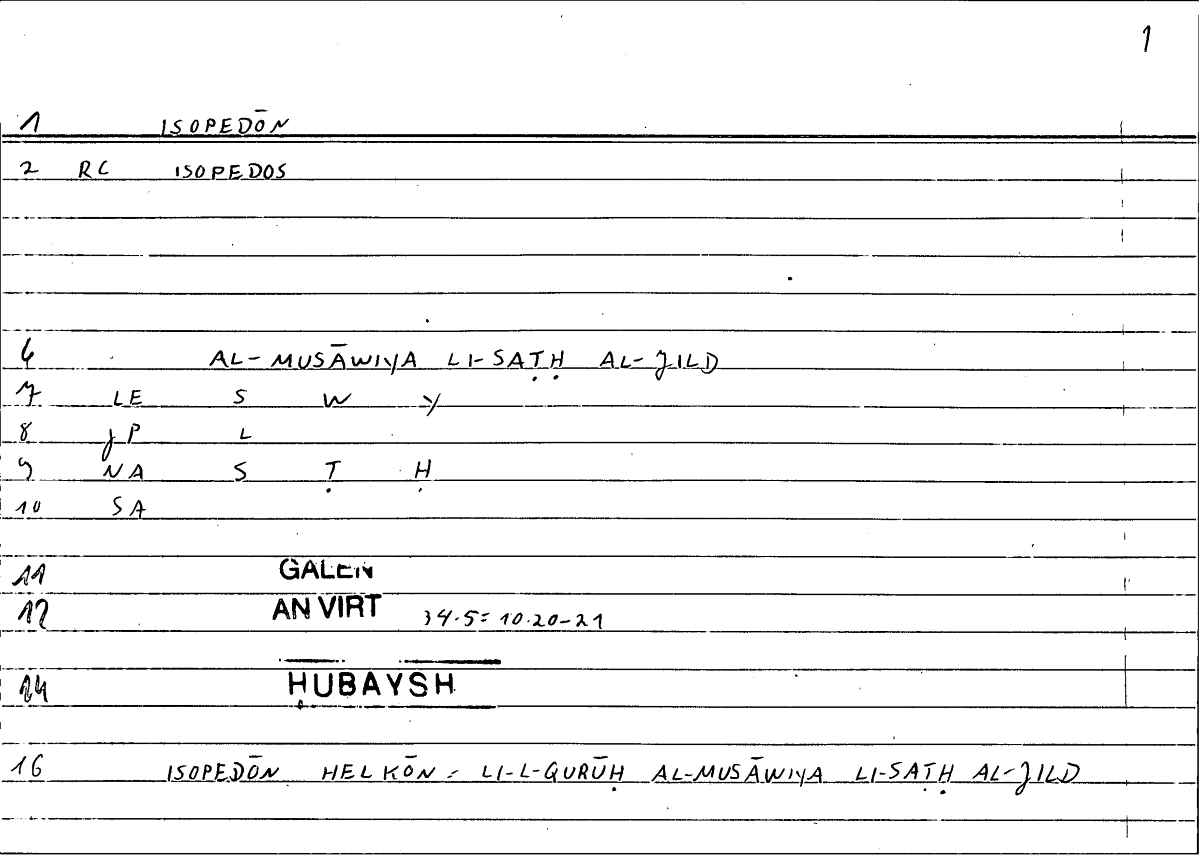 1
1 ISOPEDŌN
2 RC ISOPEDOS
6 AL-MUSĀWIYA LI-SAṬḤ AL-JILD
7 LE S W Y
8 JP L
9 NA S Ṭ Ḥ
10 SA
11 GALEN
12 AN VIRT 34.5 = 10.20-21
14 ḤUBAYSH
16 ISOPEDŌN HELKŌN = LI-L-QURŪḤ AL-MUSĀWIYA LI-SAṬḤ AL-JILD